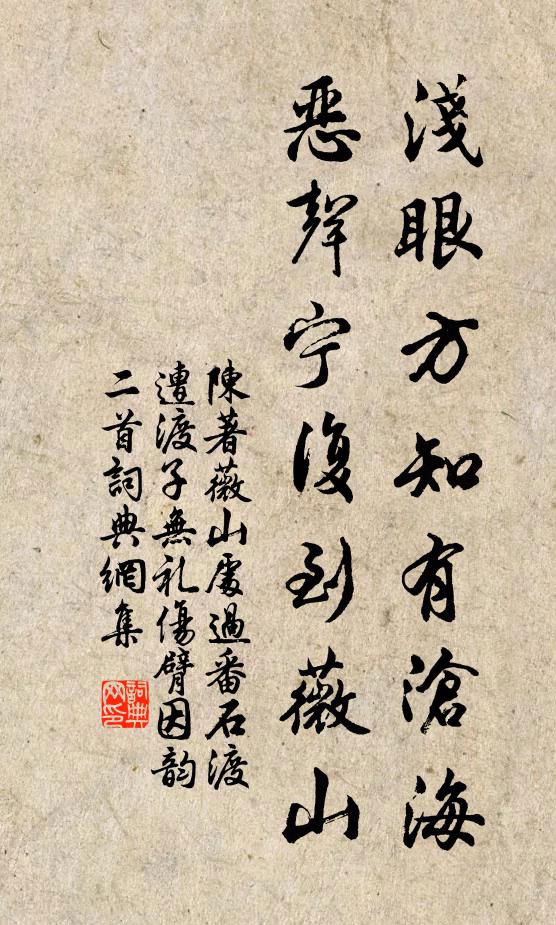 淺眼方知有滄海
惡聲宁復到薇山
陳著薇山處過番石渡
遭渡子無礼傷臂因韵
二首詞典網集
詞典網印